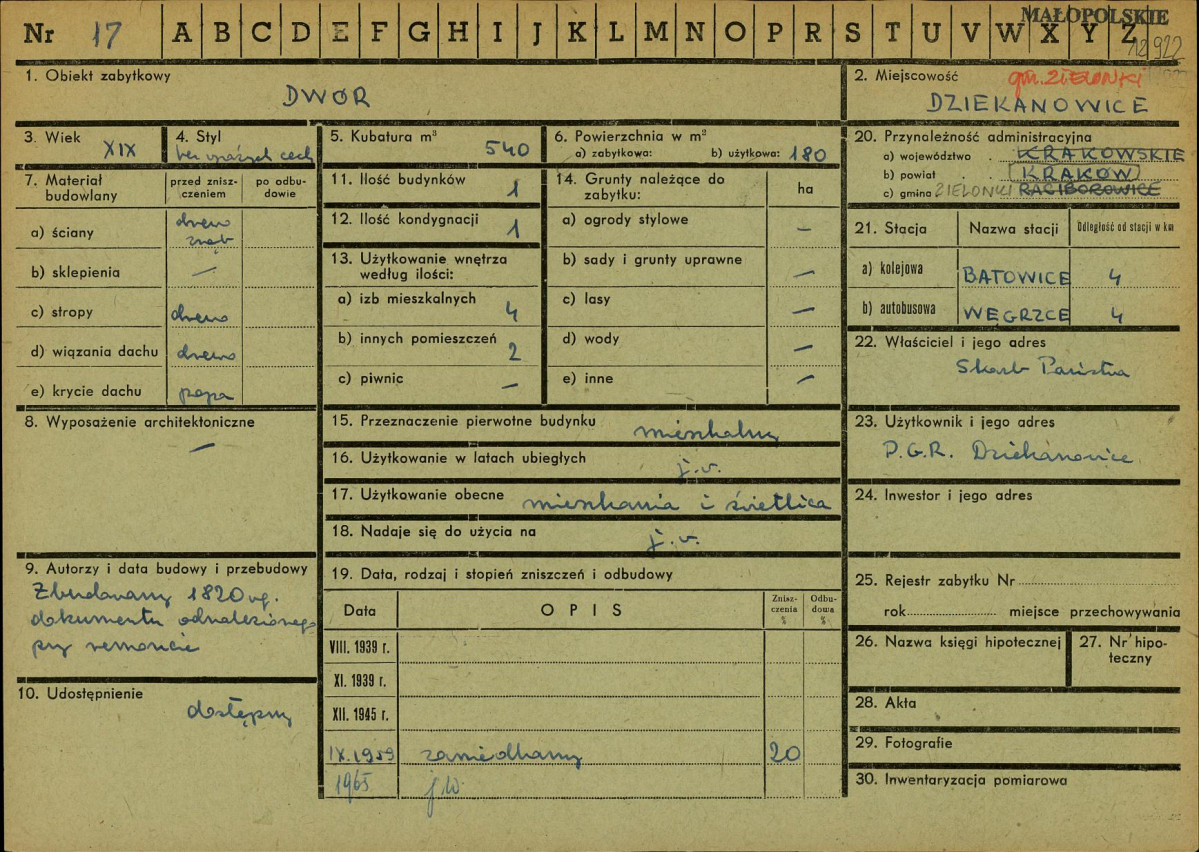 Nr 17 A B C D E F G H I J K L M N O P R S T U V W X Y Z
MAŁOPOLSKIE
12922
1. Obiekt zabytkowy
DWÓR
2. Miejscowość gm. ZIELONKI
DZIEKANOWICE
3. Wiek
XIX
4. Styl
bez wyraźnych cech
5. Kubatura m³
540
6. Powierzchnia w m²
a) zabytkowa: b) użytkowa: 180
20. Przynależność administracyjna
a) województwo KRAKOWSKIE
b) powiat KRAKÓW
c) gmina ZIELONKI RACIBOROWICE
7. Materiał budowlany
przed znisz-
czeniem
po odbu-
dowie
a) ściany drewno
zrąb
b) sklepienia —
c) stropy drewno
d) wiązania dachu drewno
e) krycie dachu papa
11. Ilość budynków 1
12. Ilość kondygnacji 1
13. Użytkowanie wnętrza
według ilości:
a) izb mieszkalnych 4
b) innych pomieszczeń 2
c) piwnic —
14. Grunty należące do
zabytku:
ha
a) ogrody stylowe —
b) sady i grunty uprawne —
c) lasy —
d) wody —
e) inne —
21. Stacja Nazwa stacji Odległość od stacji w km
a) kolejowa BATOWICE 4
b) autobusowa WĘGRZCE 4
22. Właściciel i jego adres
Skarb Państwa
8. Wyposażenie architektoniczne
—
15. Przeznaczenie pierwotne budynku mieszkalny
16. Użytkowanie w latach ubiegłych j.w.
17. Użytkowanie obecne mieszkania i świetlica
18. Nadaje się do użycia na j.w.
23. Użytkownik i jego adres
P.G.R. Dziekanowice
24. Inwestor i jego adres
9. Autorzy i data budowy i przebudowy
Zbudowany 1820 wg.
dokumentu odnalezionego
przy remoncie
10. Udostępnienie
dostępny
19. Data, rodzaj i stopień zniszczeń i odbudowy
Data OPIS
Znisz-
czenia
%
Odbu-
dowa
%
VIII. 1939 r.
XI. 1939 r.
XII. 1945 r.
IX.1959 zaniedbany 20
1965 j.w.
25. Rejestr zabytku Nr
rok miejsce przechowywania
26. Nazwa księgi hipotecznej
27. Nr hipo-
teczny
28. Akta
29. Fotografie
30. Inwentaryzacja pomiarowa